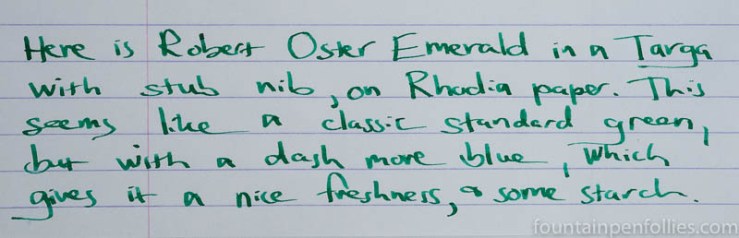 Here is Robert Oster Emerald in a Targa
with stub nib, on Rhodia paper. This
seems like a classic standard green,
but with a dash more blue, which
gives it a nice freshness, & some starch.
fountainpenfollies.com